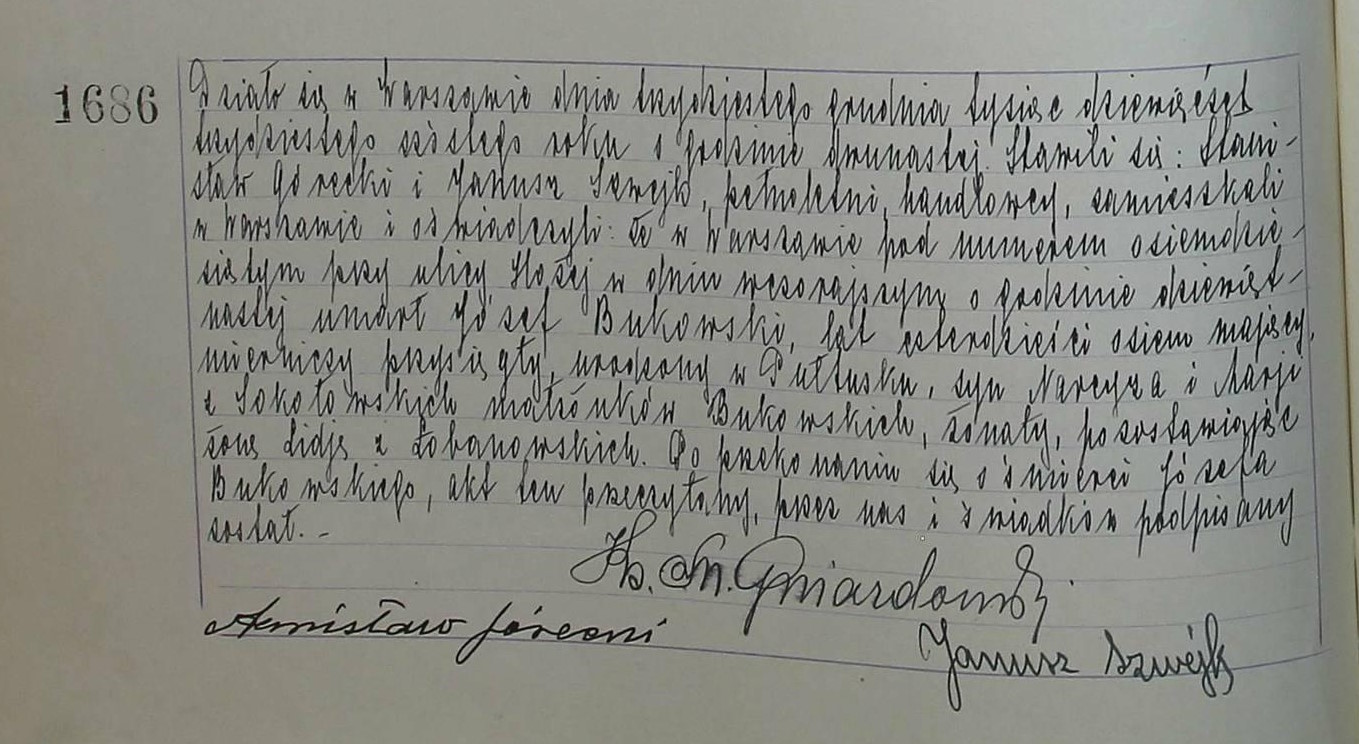 1686
Działo się w Warszawie dnia trzydziestego grudnia tysiąc dziewięćset
trzydziestego szóstego roku o godzinie dwunastej. Stawili się: Stani-
sław Górecki i Janusz Szwejk, pełnoletni, handlowcy, zamieszkali
w Warszawie i oświadczyli: że w Warszawie pod numerem osiemdzie-
siątym przy ulicy Hożej w dniu wczorajszym o godzinie dziewięt-
nastej umarł Józef Bukowski, lat czterdzieści osiem mający,
mierniczy przysięgły, urodzony w Pułtusku, syn Narcyza i Marji
z Sokołowskich małżonków Bukowskich, żonaty, pozostawiając
żonę Lidję z Łobanowskich. Po przekonaniu się o śmierci Józefa
Bukowskiego, akt ten przeczytany, przez nas i świadków podpisany
został. -
Ks. M.
Stanisław Górecki
Janusz Szwejk